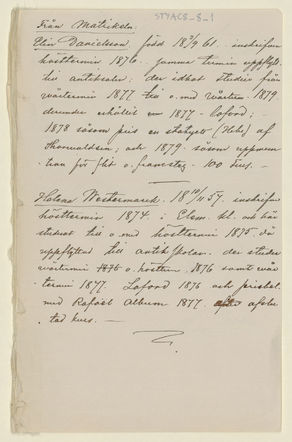 STYACS_8_1
Från Matrikeln
Elin Danielson född 18 3/9 61. inskrifven
höstterminen 1876. samma termin uppflytt.
till antiksalen; der idkat studier från
vårtermin 1877 till o. med vårter. 1879
derunder erhållit år 1877 Loford;
1878 såsom pris en statyett (Hebe) af
Thorwaldsen; och 1879 såsom uppmun-
tran för flit o. framsteg 100 Fmk. —
Helena Westermarck. 18 10/11 57. inskrifven
höstterminen 1874. i Elem. kl. och här
studerat till o. med höstterminen 1875 då
uppflyttad till antik skolan. der studier
vårtermin 1876 o. hösten. 1876 samt vår-
termin 1877. Loford 1876 och prisbel.
med Rafael Album 1877. afslu-
tad kurs. —